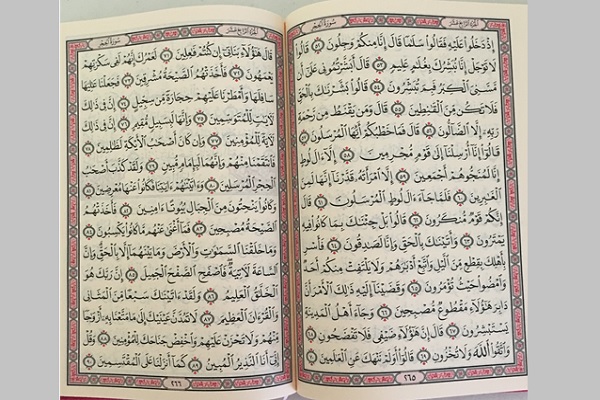 الجزء الرابع عشر
سورة الحجر
إِذْ دَخَلُوا۟ عَلَيْهِ فَقَالُوا۟ سَلَٰمًا قَالَ إِنَّا مِنكُمْ وَجِلُونَ ٥٢ قَالُوا۟
لَا تَوْجَلْ إِنَّا نُبَشِّرُكَ بِغُلَٰمٍ عَلِيمٍ ٥٣ قَالَ أَبَشَّرْتُمُونِى عَلَىٰٓ أَن
مَّسَّنِىَ ٱلْكِبَرُ فَبِمَ تُبَشِّرُونَ ٥٤ قَالُوا۟ بَشَّرْنَٰكَ بِٱلْحَقِّ
فَلَا تَكُن مِّنَ ٱلْقَٰنِطِينَ ٥٥ قَالَ وَمَن يَقْنَطُ مِن رَّحْمَةِ
رَبِّهِۦٓ إِلَّا ٱلضَّآلُّونَ ٥٦ قَالَ فَمَا خَطْبُكُمْ أَيُّهَا ٱلْمُرْسَلُونَ ٥٧
قَالُوٓا۟ إِنَّآ أُرْسِلْنَآ إِلَىٰ قَوْمٍ مُّجْرِمِينَ ٥٨ إِلَّآ ءَالَ لُوطٍ
إِنَّا لَمُنَجُّوهُمْ أَجْمَعِينَ ٥٩ إِلَّا ٱمْرَأَتَهُۥ قَدَّرْنَآ إِنَّهَا لَمِنَ
ٱلْغَٰبِرِينَ ٦٠ فَلَمَّا جَآءَ ءَالَ لُوطٍ ٱلْمُرْسَلُونَ ٦١ قَالَ
إِنَّكُمْ قَوْمٌ مُّنكَرُونَ ٦٢ قَالُوا۟ بَلْ جِئْنَٰكَ بِمَا كَانُوا۟ فِيهِ
يَمْتَرُونَ ٦٣ وَأَتَيْنَٰكَ بِٱلْحَقِّ وَإِنَّا لَصَٰدِقُونَ ٦٤ فَأَسْرِ
بِأَهْلِكَ بِقِطْعٍ مِّنَ ٱلَّيْلِ وَٱتَّبِعْ أَدْبَٰرَهُمْ وَلَا يَلْتَفِتْ مِنكُمْ أَحَدٌ
وَٱمْضُوا۟ حَيْثُ تُؤْمَرُونَ ٦٥ وَقَضَيْنَآ إِلَيْهِ ذَٰلِكَ ٱلْأَمْرَ أَنَّ
دَابِرَ هَٰٓؤُلَآءِ مَقْطُوعٌ مُّصْبِحِينَ ٦٦ وَجَآءَ أَهْلُ ٱلْمَدِينَةِ
يَسْتَبْشِرُونَ ٦٧ قَالَ إِنَّ هَٰٓؤُلَآءِ ضَيْفِى فَلَا تَفْضَحُونِ ٦٨
وَٱتَّقُوا۟ ٱللَّهَ وَلَا تُخْزُونِ ٦٩ قَالُوٓا۟ أَوَلَمْ نَنْهَكَ عَنِ ٱلْعَٰلَمِينَ ٧٠
٢٦٥
الجزء الرابع عشر
سورة الحجر
قَالَ هَٰٓؤُلَآءِ بَنَاتِىٓ إِن كُنتُمْ فَٰعِلِينَ ٧١ لَعَمْرُكَ إِنَّهُمْ لَفِى سَكْرَتِهِمْ
يَعْمَهُونَ ٧٢ فَأَخَذَتْهُمُ ٱلصَّيْحَةُ مُشْرِقِينَ ٧٣ فَجَعَلْنَا عَٰلِيَهَا
سَافِلَهَا وَأَمْطَرْنَا عَلَيْهِمْ حِجَارَةً مِّن سِجِّيلٍ ٧٤ إِنَّ فِى ذَٰلِكَ
لَءَايَٰتٍ لِّلْمُتَوَسِّمِينَ ٧٥ وَإِنَّهَا لَبِسَبِيلٍ مُّقِيمٍ ٧٦ إِنَّ فِى ذَٰلِكَ
لَءَايَةً لِّلْمُؤْمِنِينَ ٧٧ وَإِن كَانَ أَصْحَٰبُ ٱلْأَيْكَةِ لَظَٰلِمِينَ ٧٨
فَٱنتَقَمْنَا مِنْهُمْ وَإِنَّهُمَا لَبِإِمَامٍ مُّبِينٍ ٧٩ وَلَقَدْ كَذَّبَ أَصْحَٰبُ
ٱلْحِجْرِ ٱلْمُرْسَلِينَ ٨٠ وَءَاتَيْنَٰهُمْ ءَايَٰتِنَا فَكَانُوا۟ عَنْهَا مُعْرِضِينَ ٨١
وَكَانُوا۟ يَنْحِتُونَ مِنَ ٱلْجِبَالِ بُيُوتًا ءَامِنِينَ ٨٢ فَأَخَذَتْهُمُ
ٱلصَّيْحَةُ مُصْبِحِينَ ٨٣ فَمَآ أَغْنَىٰ عَنْهُم مَّا كَانُوا۟ يَكْسِبُونَ ٨٤
وَمَا خَلَقْنَا ٱلسَّمَٰوَٰتِ وَٱلْأَرْضَ وَمَا بَيْنَهُمَآ إِلَّا بِٱلْحَقِّ وَإِنَّ
ٱلسَّاعَةَ لَءَاتِيَةٌ فَٱصْفَحِ ٱلصَّفْحَ ٱلْجَمِيلَ ٨٥ إِنَّ رَبَّكَ هُوَ
ٱلْخَلَّٰقُ ٱلْعَلِيمُ ٨٦ وَلَقَدْ ءَاتَيْنَٰكَ سَبْعًا مِّنَ ٱلْمَثَانِى
وَٱلْقُرْءَانَ ٱلْعَظِيمَ ٨٧ لَا تَمُدَّنَّ عَيْنَيْكَ إِلَىٰ مَا مَتَّعْنَا بِهِۦٓ أَزْوَٰجًا
مِّنْهُمْ وَلَا تَحْزَنْ عَلَيْهِمْ وَٱخْفِضْ جَنَاحَكَ لِلْمُؤْمِنِينَ ٨٨ وَقُلْ
إِنِّىٓ أَنَا ٱلنَّذِيرُ ٱلْمُبِينُ ٨٩ كَمَآ أَنزَلْنَا عَلَى ٱلْمُقْتَسِمِينَ ٩٠
٢٦٦